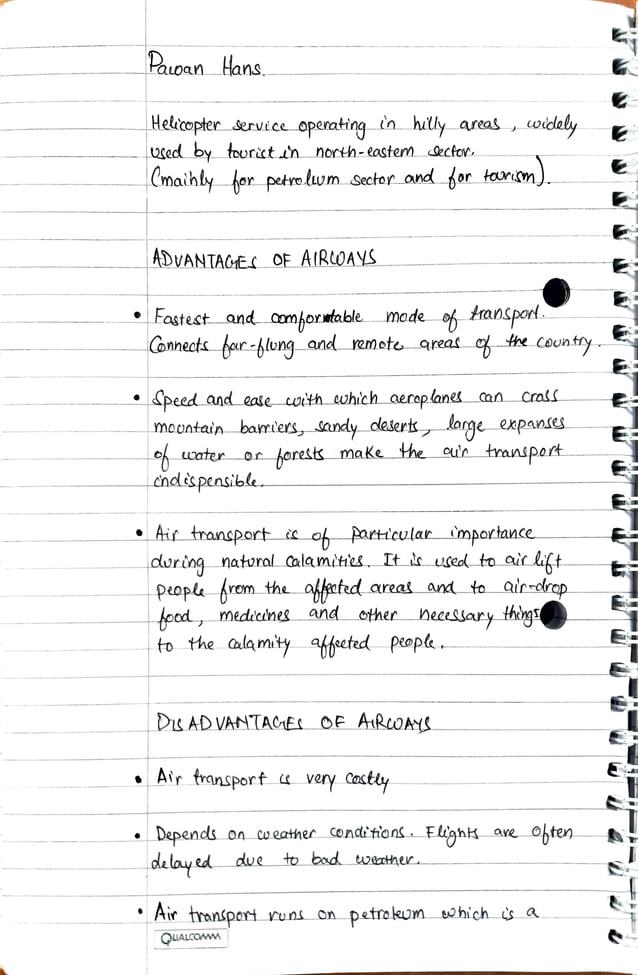 Pawan Hans.
Helicopter service operating in hilly areas, widely
used by tourist in north-eastern sector.
(mainly for petroleum sector and for tourism).
ADVANTAGES OF AIRWAYS
• Fastest and comfortable mode of transport.
Connects far-flung and remote areas of the country.
• Speed and ease with which aeroplanes can cross
mountain barriers, sandy deserts, large expanses
of water or forests make the air transport
indispensible.
• Air transport is of particular importance
during natural calamities. It is used to air lift
people from the affected areas and to air-drop
food, medicines and other necessary things
to the calamity affected people.
DISADVANTAGES OF AIRWAYS
• Air transport is very costly
• Depends on weather conditions. Flights are often
delayed due to bad weather.
• Air transport runs on petroleum which is a
QUALCOMM